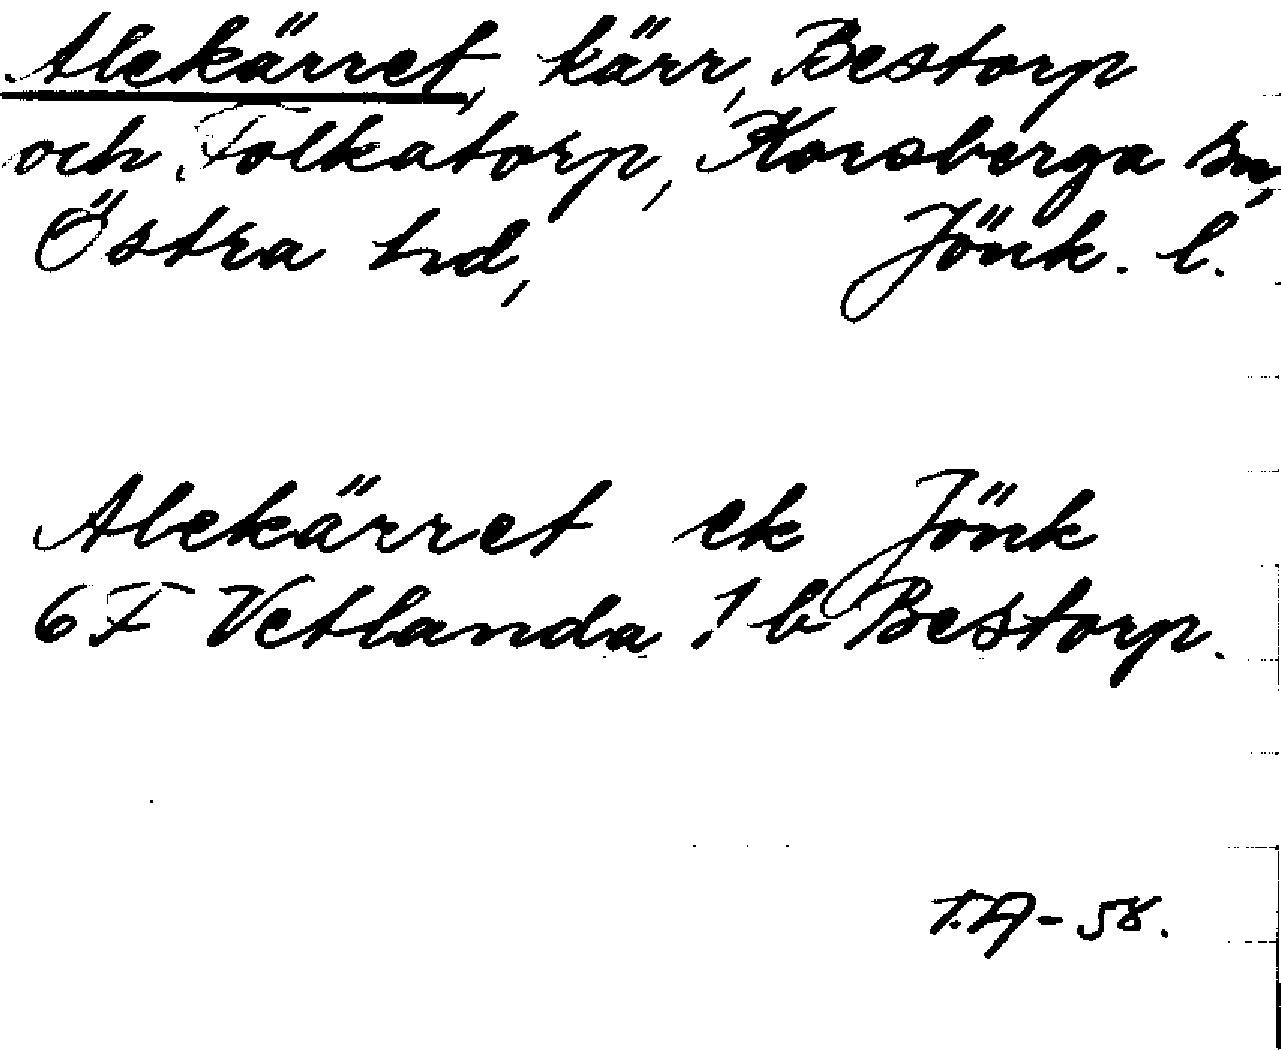 Alekärret, kärr, Bestorp
och Folkatorp, Korsberga sn,
Östra hd, Jönk. l.
Alekärret ek Jönk
6F Vetlanda 1 b Bestorp.
-58.